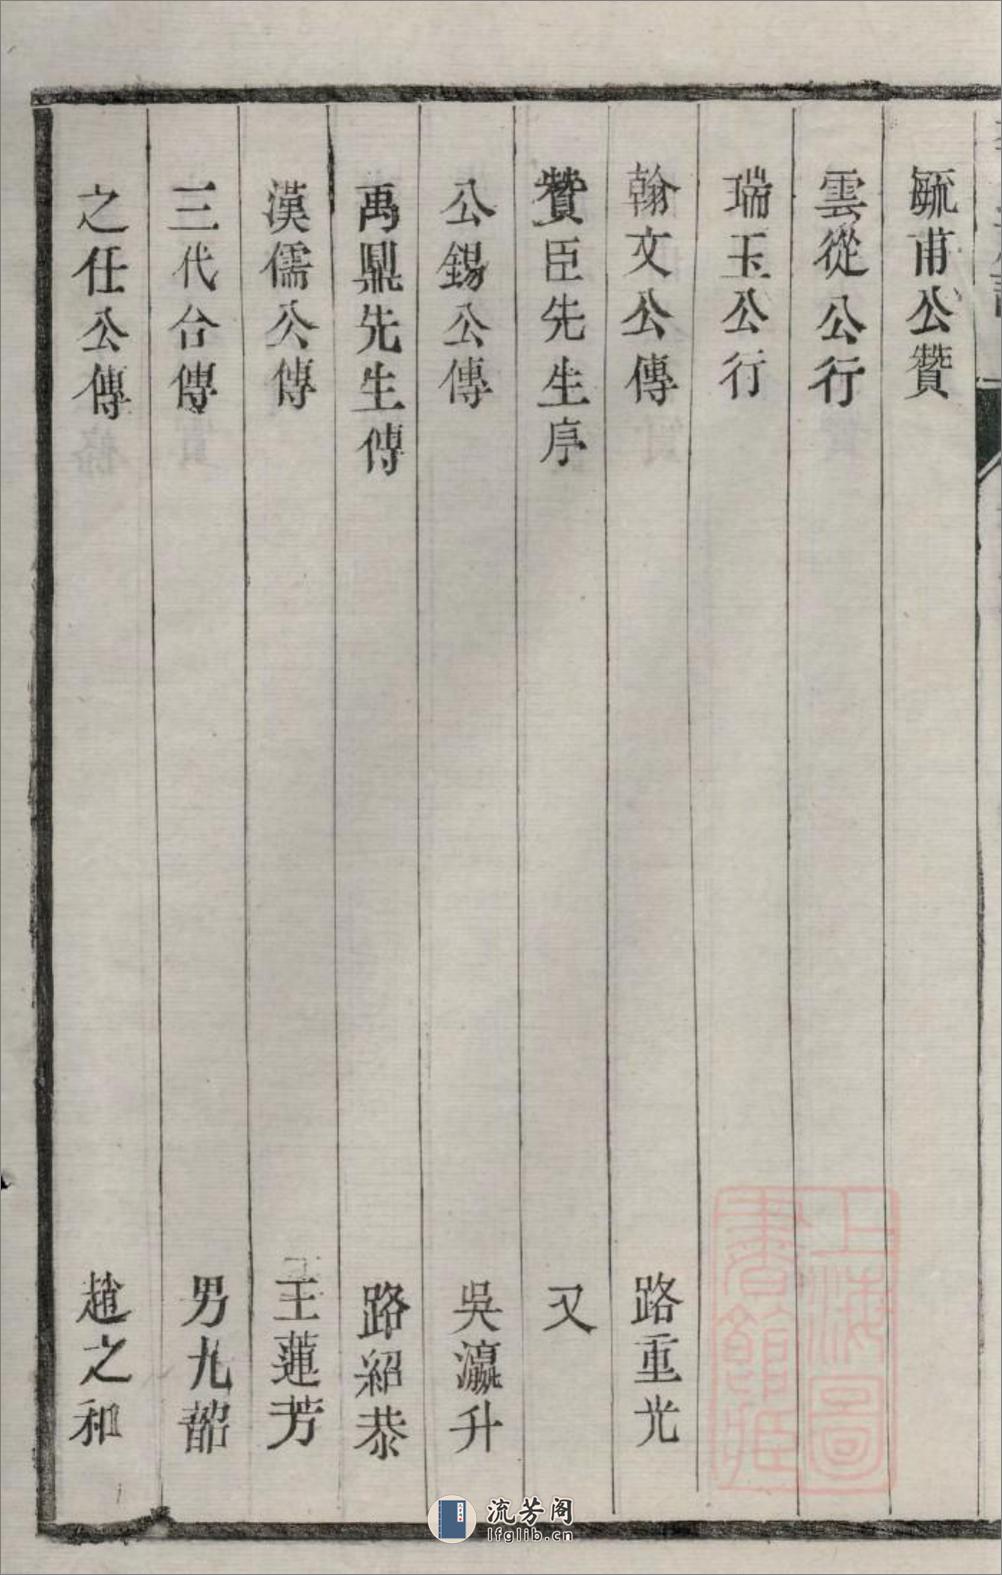 毓甫公贊
雲從公行
瑞玉公行
翰文公傳 路重光
贊臣先生序 又
公錫公傳 吳瀛升
禹鼎先生傳 路紹恭
漢儒公傳 王蓮芳
三代台傳 男九韶
之任公傳 趙之和
上海圖
書館藏
流芳阁
lfglib.cn